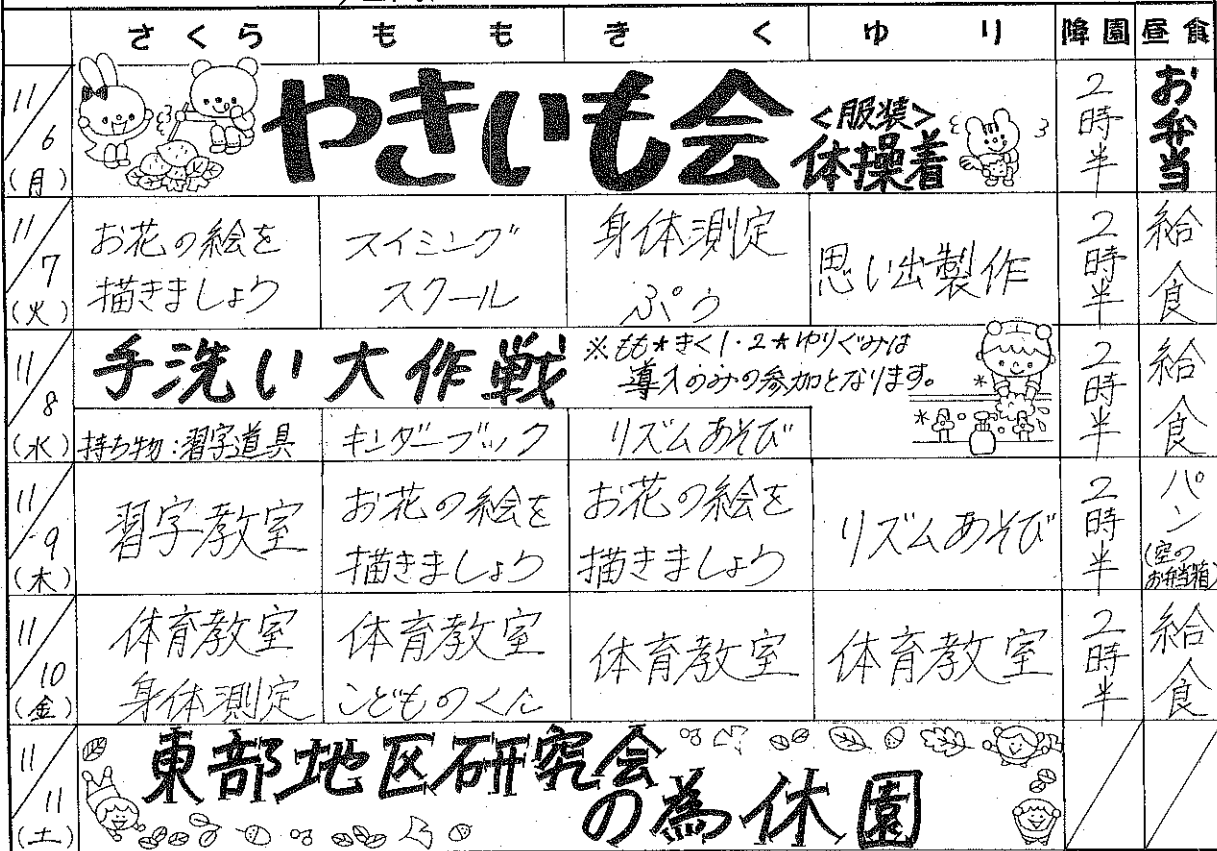 さくら もも きく ゆり 降園 昼食
11/6(月) やきいも会 <服装> 体操着 2時半 お弁当
11/7(火)
お花の絵を
描きましょう
スイミング
スクール
身体測定
ぷう
思い出製作
2時半
給食
11/8(水)
手洗い大作戦
※もも*きく1・2*ゆりぐみは
導入のみの参加となります。
持ち物:習字道具
キンダーブック
リズムあそび
2時半
給食
11/9(木)
習字教室
お花の絵を
描きましょう
お花の絵を
描きましょう
リズムあそび
2時半
パン
(空の
お弁当箱)
11/10(金)
体育教室
身体測定
体育教室
こどものくに
体育教室
体育教室
2時半
給食
11/11(土)
東部地区研究会
の為休園